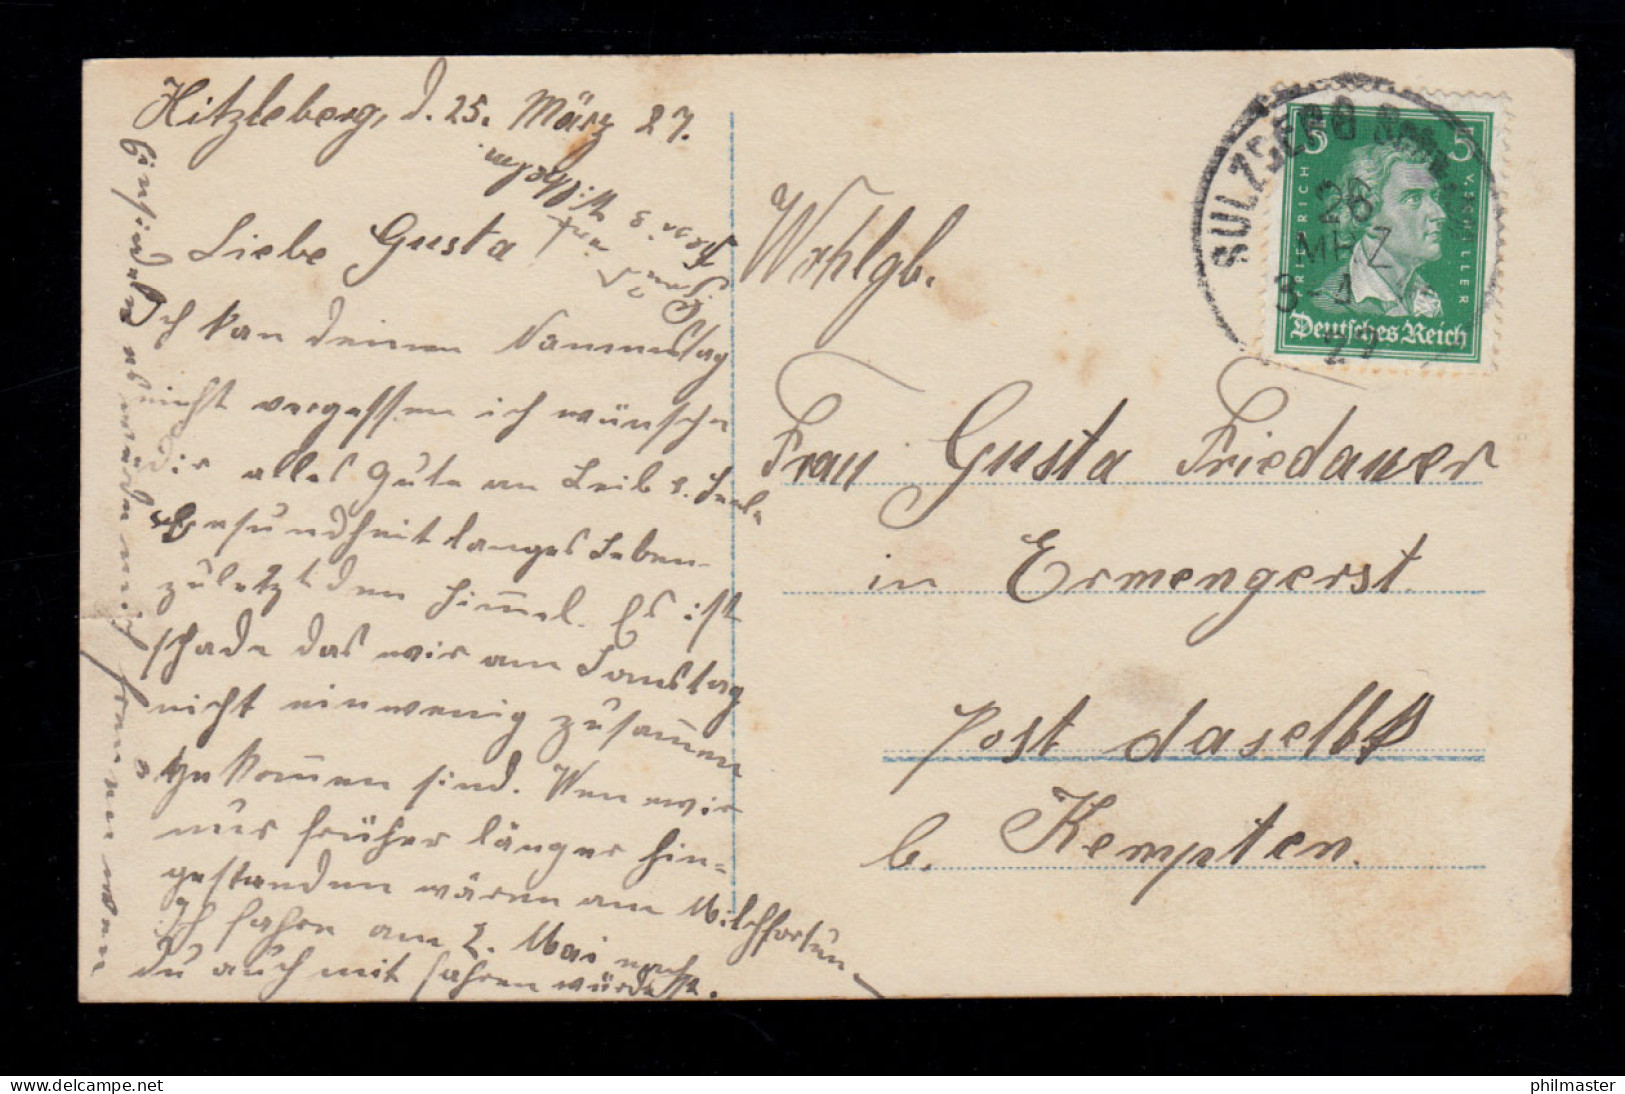 Hitzleberg, d. 25. März 27.
Liebe Gusta
Ich kan deinen Nammestag
nicht vergessen ich wünsche
dir alles Gute an Leib u. Seele
Gesundheit langes Leben
zuletzt den Himmel. Es ist
schade das wir am Samstag
nicht ein wenig zusammen
gekommen sind. Wen wir
nur früher länger hin=
gestanden wären am
Ich fahre am 2. Mai nach
Milchfortun
du auch mit fahren würdest.
Einsiedeln es würde mich freuen wen
Wohlgb.
Frau Gusta Friedauer
in Ermengerst.
Post daselbst
b. Kempten.
SULZBERG
26
MRZ
3-4
27
5 5
FRIEDRICH V. SCHILLER
Deutsches Reich
www.delcampe.net
philmaster